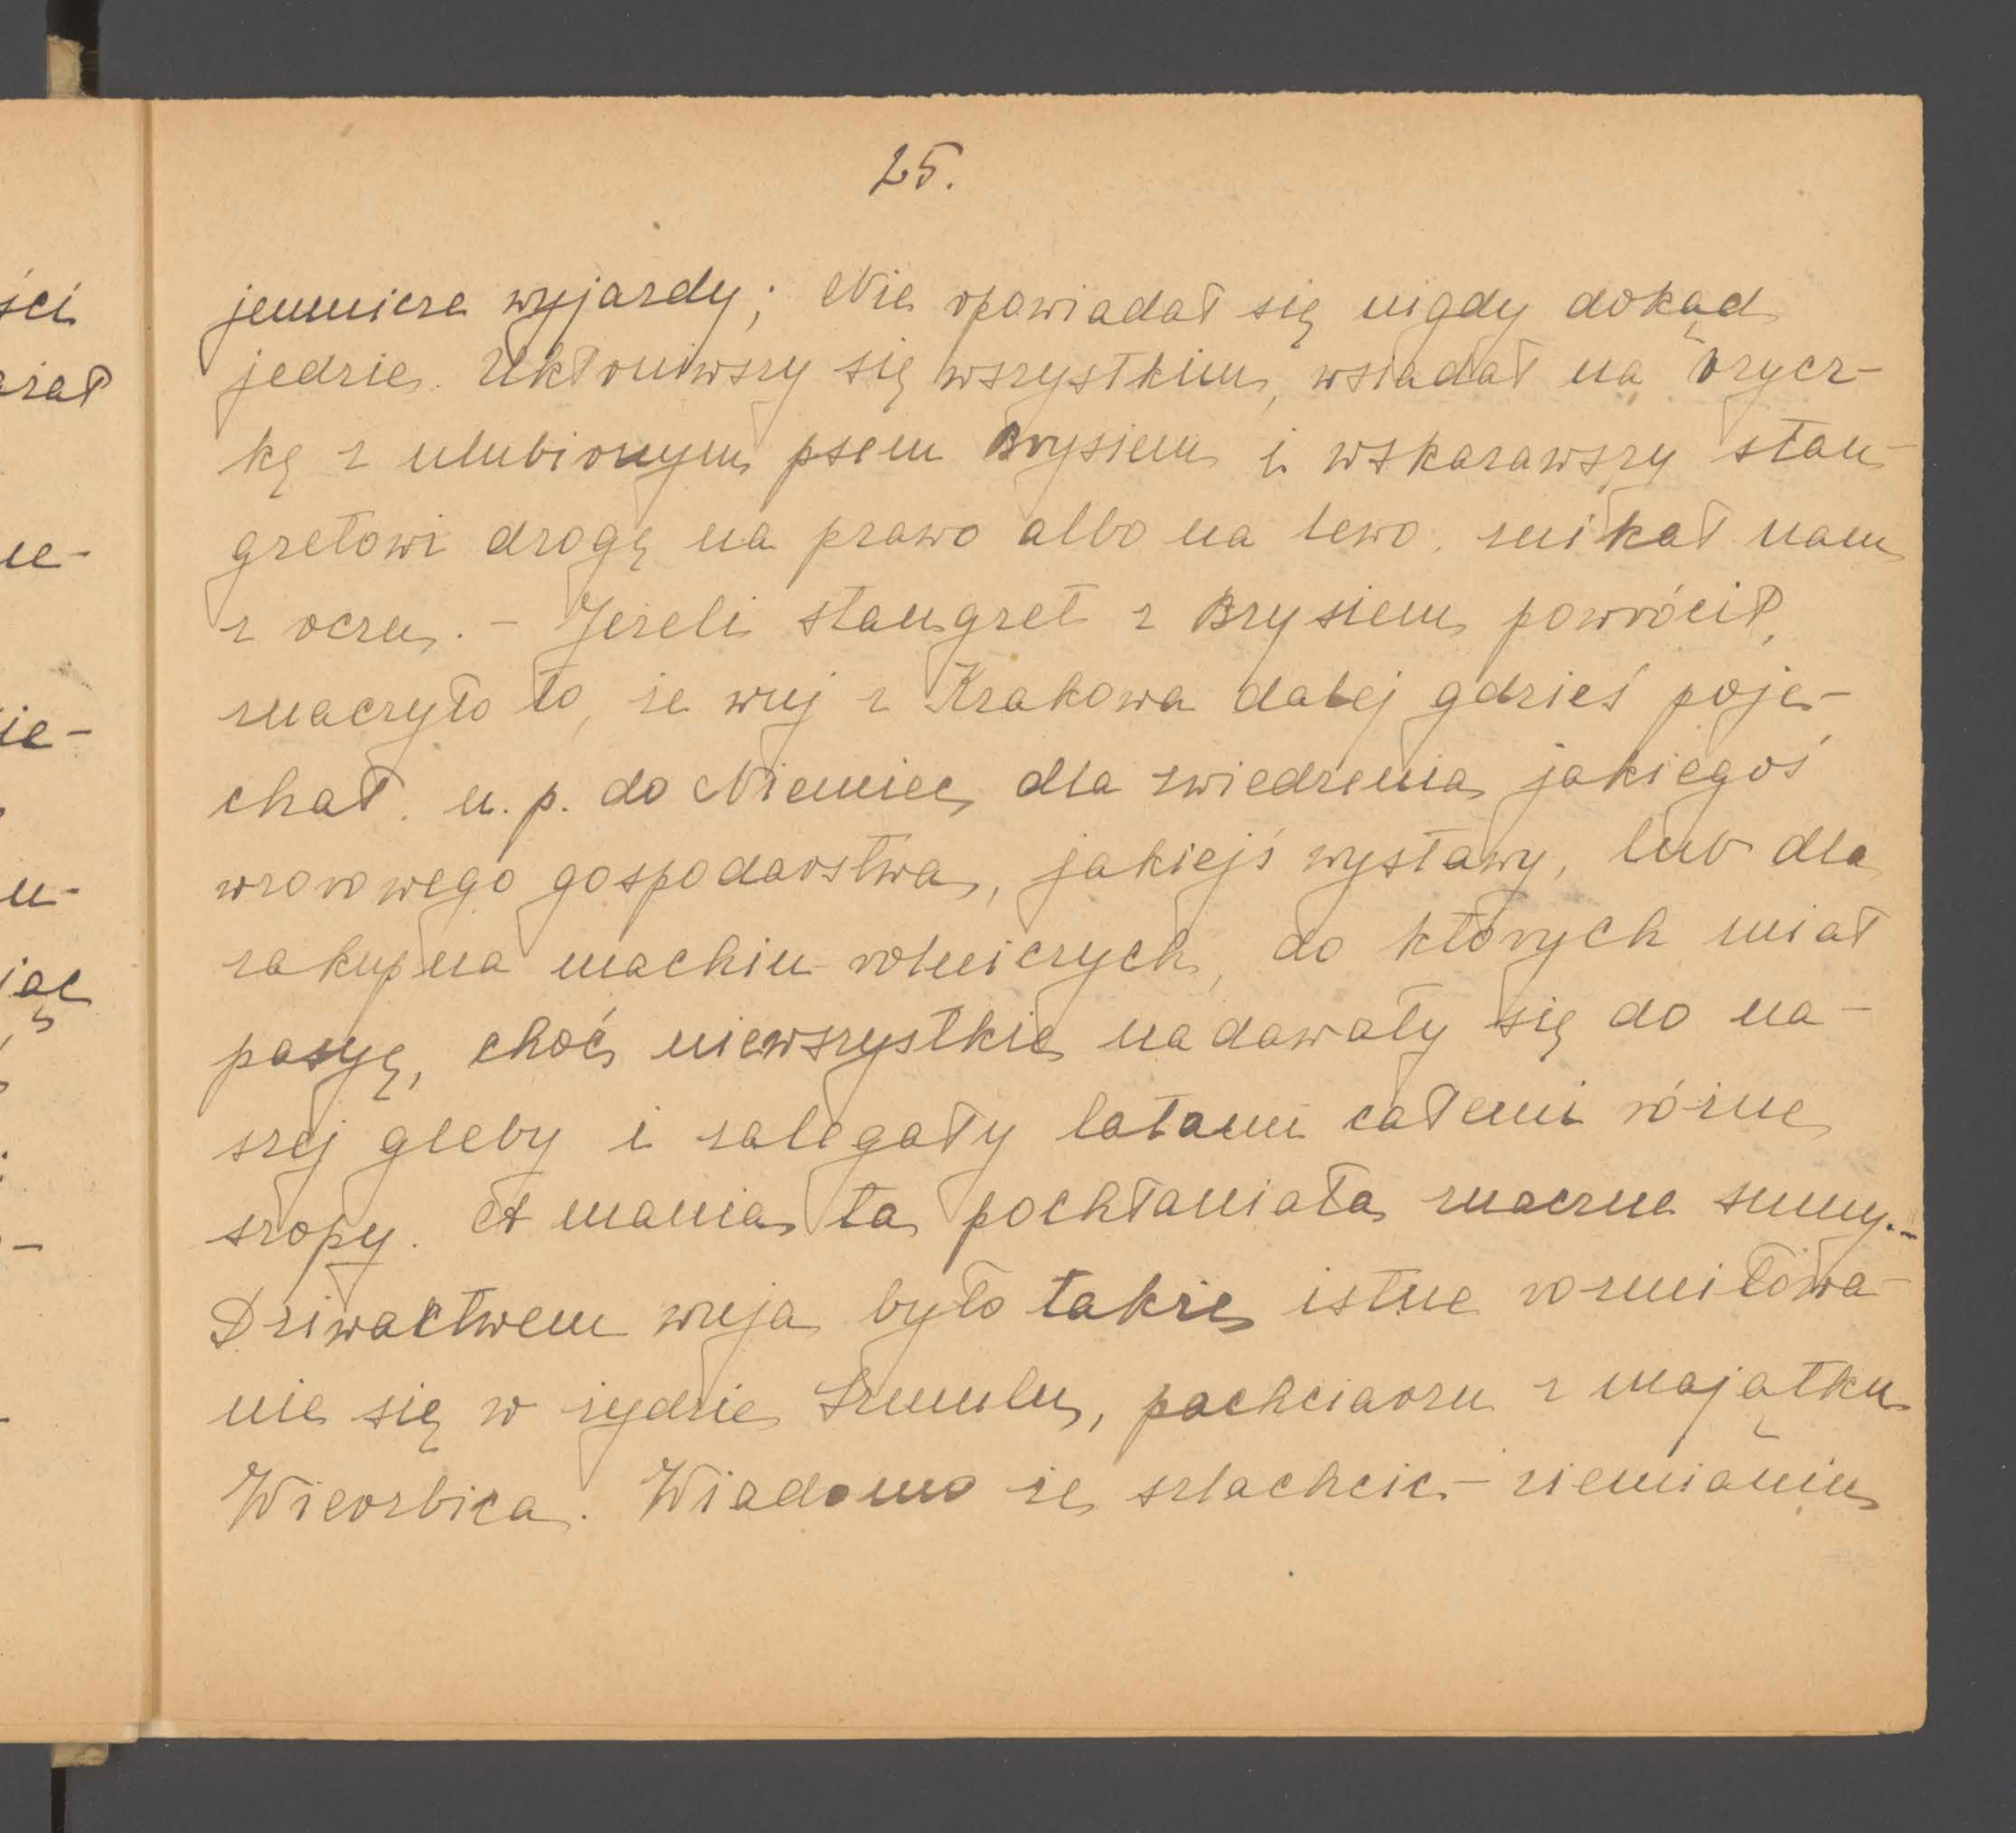 25.
jemnicze wyjazdy; Nie opowiadał się nigdy dokąd
jedzie. Ukłoniwszy się wszystkim, wsiadał na brycz-
kę z ulubionym psem Brysiem i wskazawszy stan-
gretowi drogę na prawo albo na lewo, znikał nam
z oczu. – Jeżeli stangret z Brysiem powrócił,
znaczyło to, że wuj z Krakowa dalej gdzieś poje-
chał. n. p. do Niemiec, dla zwiedzenia jakiegoś
wzorowego gospodarstwa, jakiejś wystawy, lub dla
zakupna machin rolniczych, do których miał
pasyę, choć niewszystkie nadawały się do na-
szej gleby i zalegały latami całemi różne
szopy. A mania ta pochłaniała znaczne sumy. –
Dziwactwem wuja było także istne rozmiłowa-
nie się w żydzie Szmulu, pachciarzu z majątku
Wierzbica. Wiadomo że szlachcic – ziemianin
ści
ne-
ie-
u-
jąc